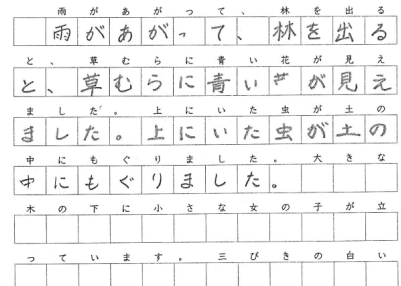 雨があがって、林を出る
雨があがって、林を出る
と、草むらに青い花が見え
と、草むらに青い艹が見え
ました。上にいた虫が土の
ました。上にいた虫が土の
中にもぐりました。大きな
中にもぐりました。
木の下に小さな女の子が立
っています。三びきの白い